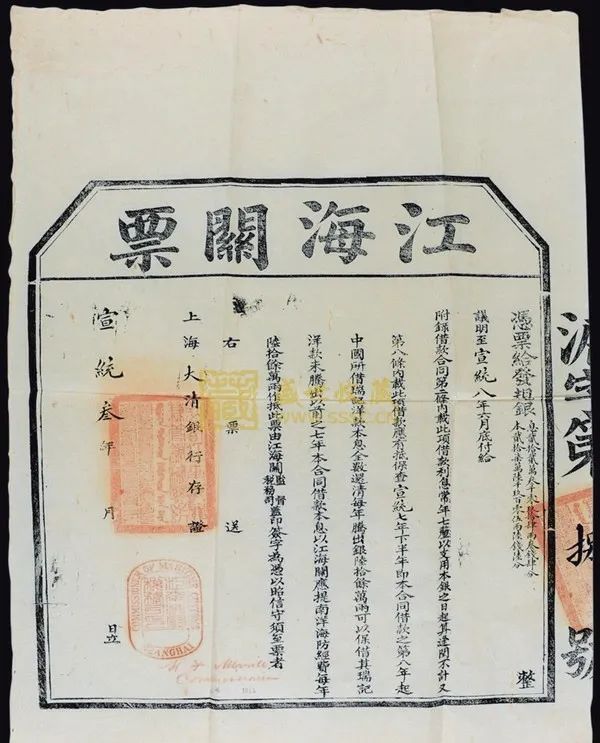 江海關票
滬字第捌號
憑票給發規銀
整
議明至宣統八年六月底付給
附錄借款合同第二條內載此項借款利息常年七釐以支用本銀之日起算連閏不計又
第八條內載此項借款應有抵保查宣統七年下半年即本合同借款之第八年起
中國所借瑞記洋款本息全數還清每年騰出銀陸拾餘萬兩可以保借其瑞記
洋款未騰出以前之七年本合同借款本息以江海關應提南洋海防經費每年
陸拾餘萬兩作抵此票由江海關監督稅務司蓋印簽字為憑以昭信守須至票者
右票送
上海大清銀行存證
宣統叁年 月 日立
COMMISSIONER OF MARITIME CUSTOMS
SHANGHAI
Commissioner